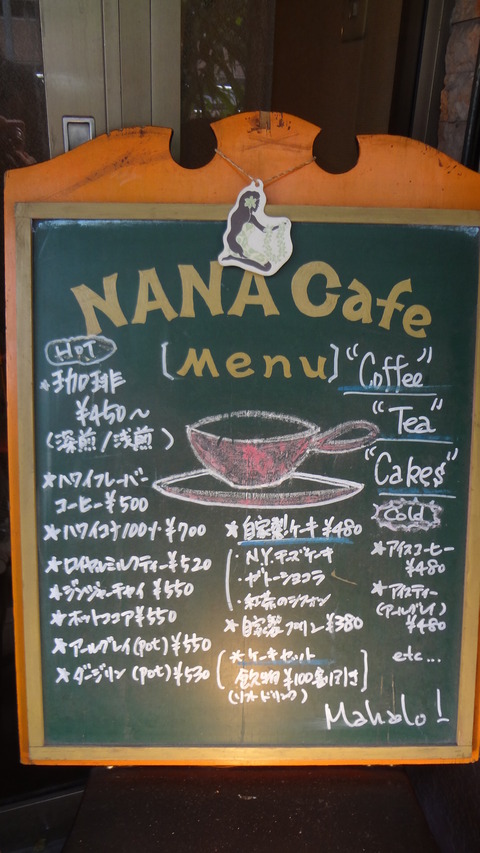 NANA Cafe
[Menu]
HOT
★珈琲
¥450～
(深煎/浅煎)
★ハワイフレーバー
コーヒー¥500
★ハワイコナ100%¥700
★ロイヤルミルクティー¥520
★ジンジャーチャイ¥550
★ホットココア¥550
★アールグレイ(pot)¥550
★ダージリン(pot)¥530
★自家製ケーキ¥480
・N.Y.チーズケーキ
・ガトーショコラ
・紅茶のシフォン
★自家製プリン¥380
★ケーキセット
飲物¥100割引き
(ソフトドリンク)
"Coffee"
"Tea"
"Cakes"
Cold
★アイスコーヒー
¥480
★アイスティー
(アールグレイ)
¥480
etc...
Mahalo!